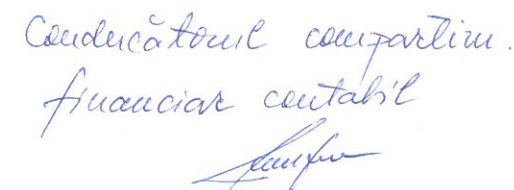 Conducătorul compartim.
financiar contabil